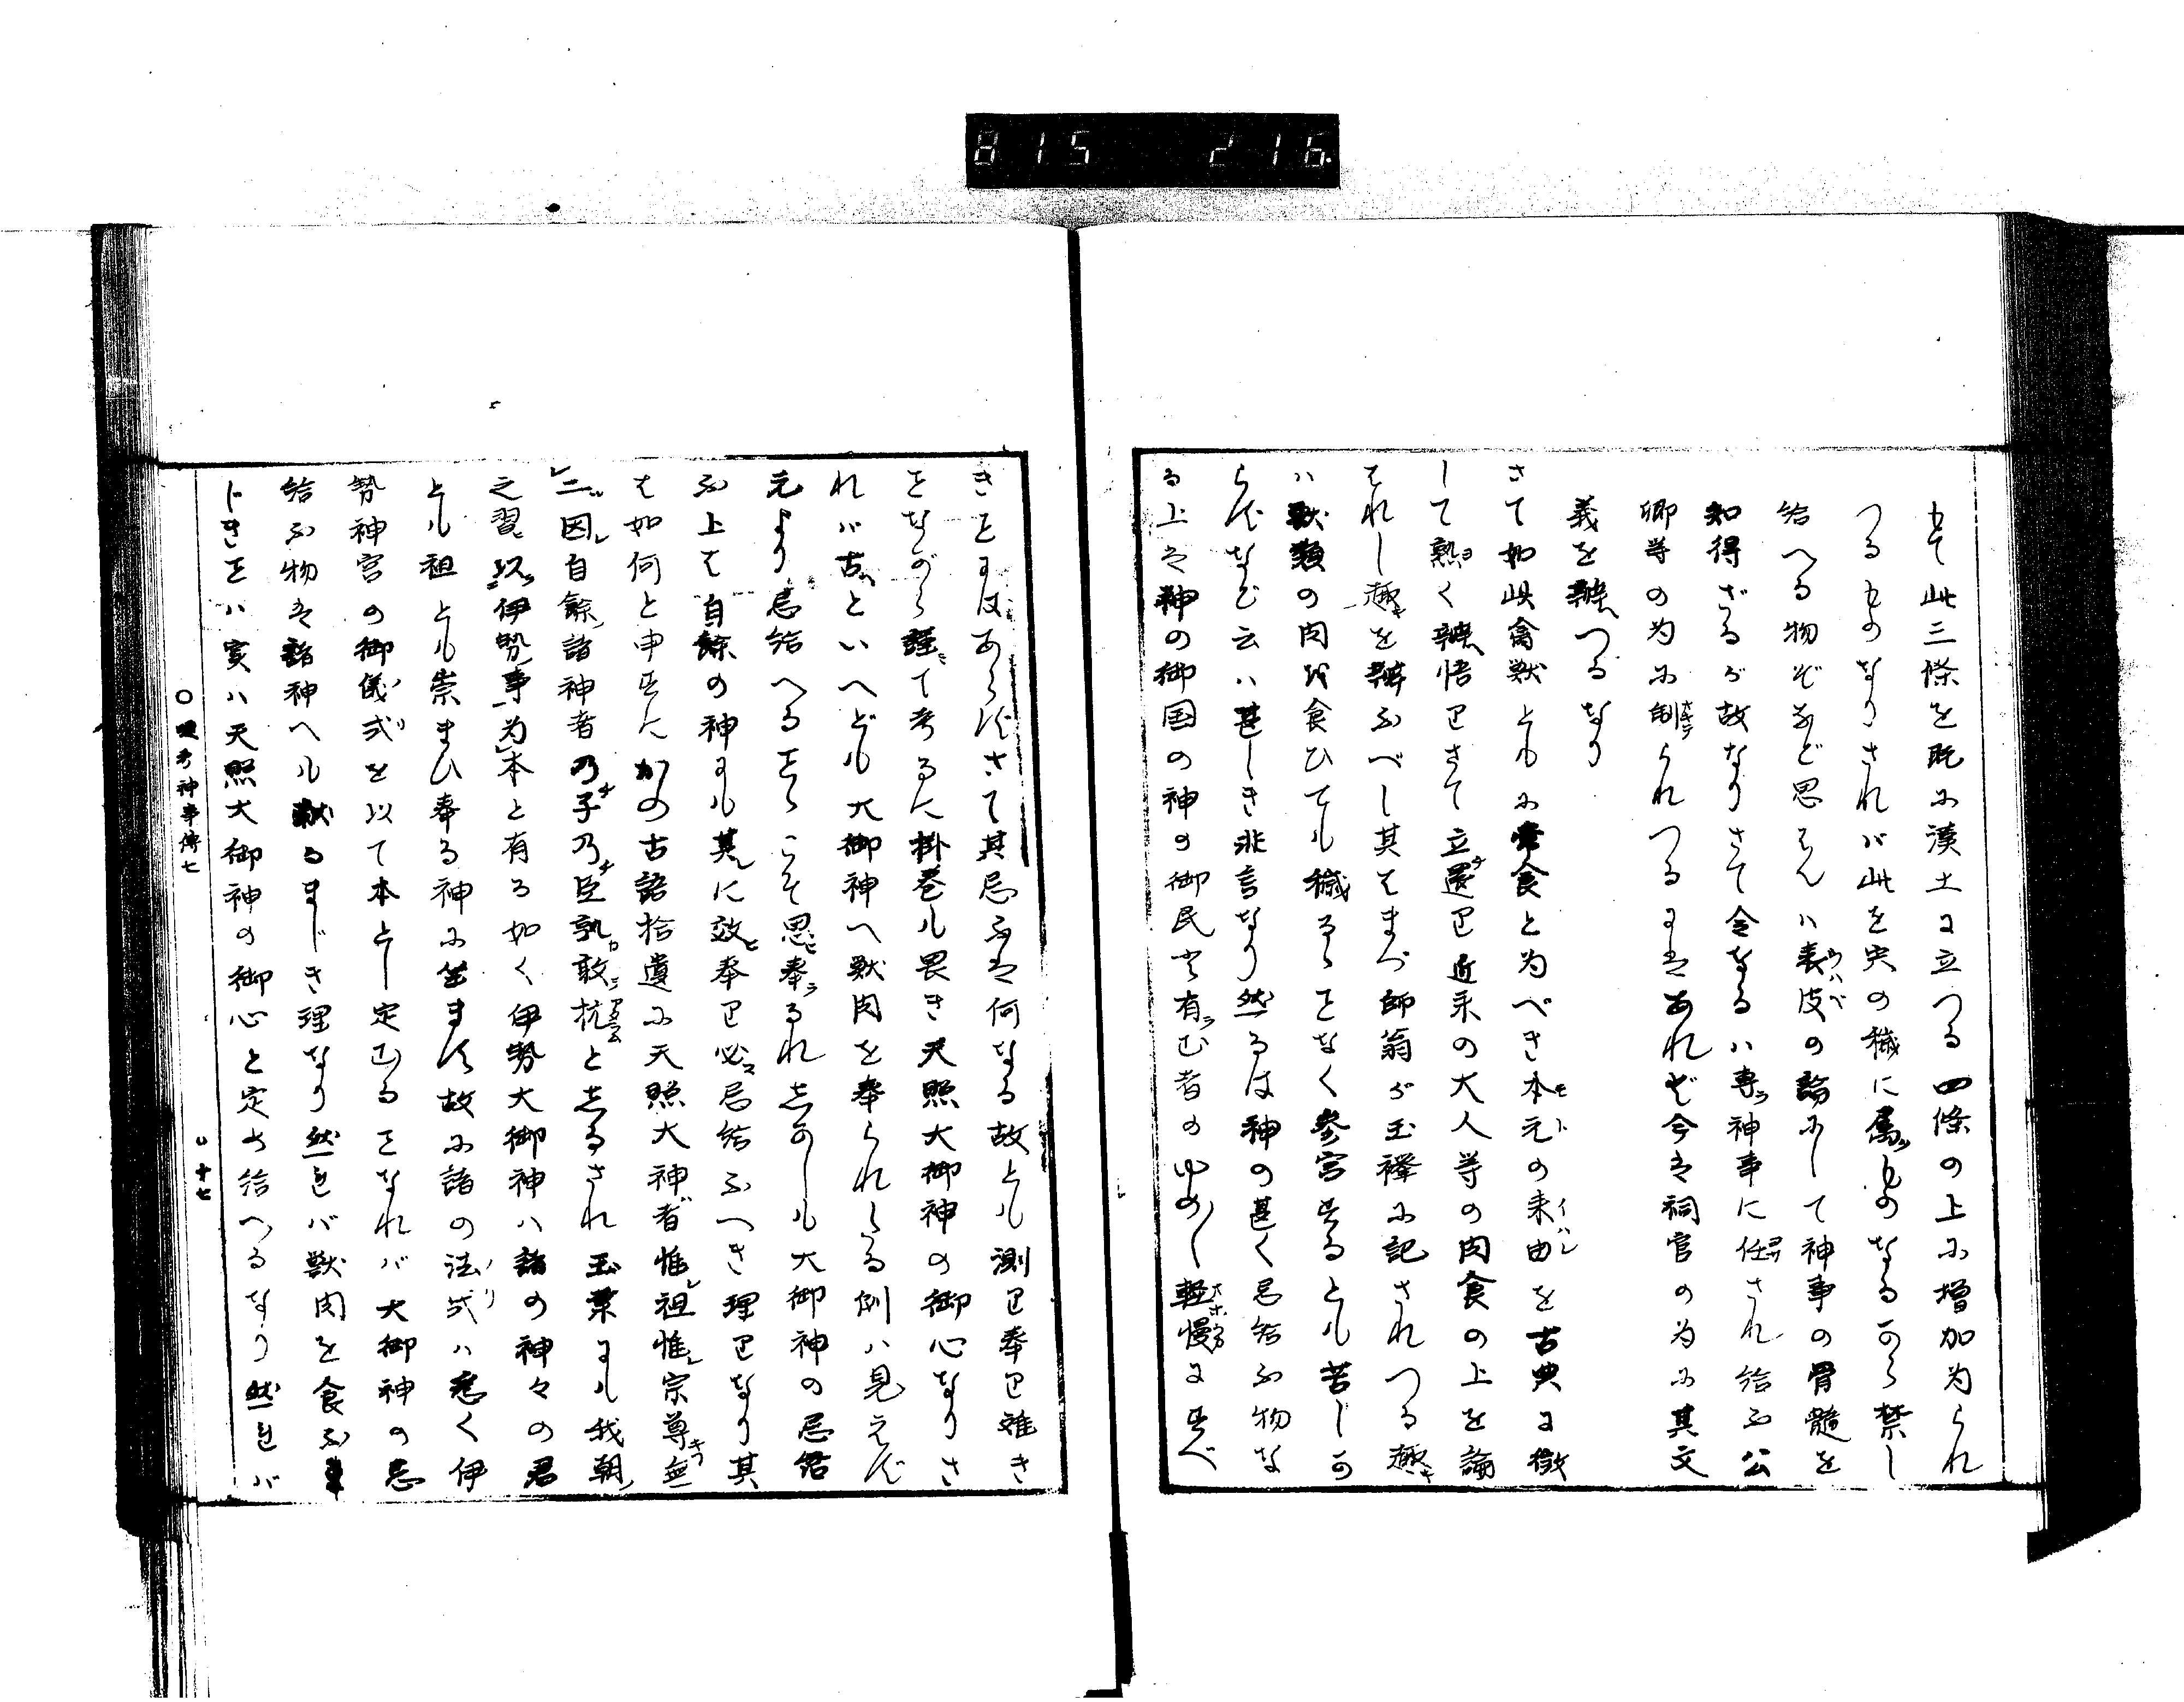 815 216.
もて此三條を既に漢土に立つる四條の上に増加為られ
つるものなりされバ此を宍の穢に属ものなるから禁し
給へる物ぞなど思はんハ表皮の論にして神事の骨髄を
知得ざるが故なりさて令なるハ専神事に任され給ふ公
卿等の為に制られつるにはあれど今は祠官の為に其文
義を辨つるなり
さて如此禽獣ともに常食と為べき本元の来由を古典に徴
して熟く辨悟りさて立還り近来の大人等の肉食の上を論
はれし趣を辨ふべし其はまづ師翁が玉襷に記されつる趣
ハ獣類の肉を食ひても穢るゝことなく参宮するとも苦しか
らずなど云ハ甚しき非言なり然るは神の甚く忌給ふ物な
る上は神の御国の神の御民と有む者のゆめ〳〵軽慢にすべ
きことにはあらずさて其忌ふは何なる故とも測り奉り難き
ことながら謹て考るに掛巻も畏き天照大御神の御心なりさ
れバ古といへども大御神へ獣肉を奉られしる例ハ見えず
元より忌給へることゝこそ思奉るれしかしも大御神の忌給
ふ上は自餘の神にも其に效奉り必忌給ふへき理りなり其
は如何と申すにかの古語拾遺に天照大神者惟祖惟宗尊無
二因自餘諸神者乃子乃臣孰敢抗としるされ玉葉にも我朝
之習以伊勢事為本と有る如く伊勢大御神ハ諸の神々の君
とも祖とも崇まひ奉る神に坐ます故に諸の法式ハ悉く伊
勢神宮の御儀式を以て本とし定むることなれバ大御神の忌
給ふ物は諸神へも獻るまじき理なり然れバ獣肉を食ふま
じきことハ実ハ天照大御神の御心と定め給へるなり然れバ
考神事傳七
十七